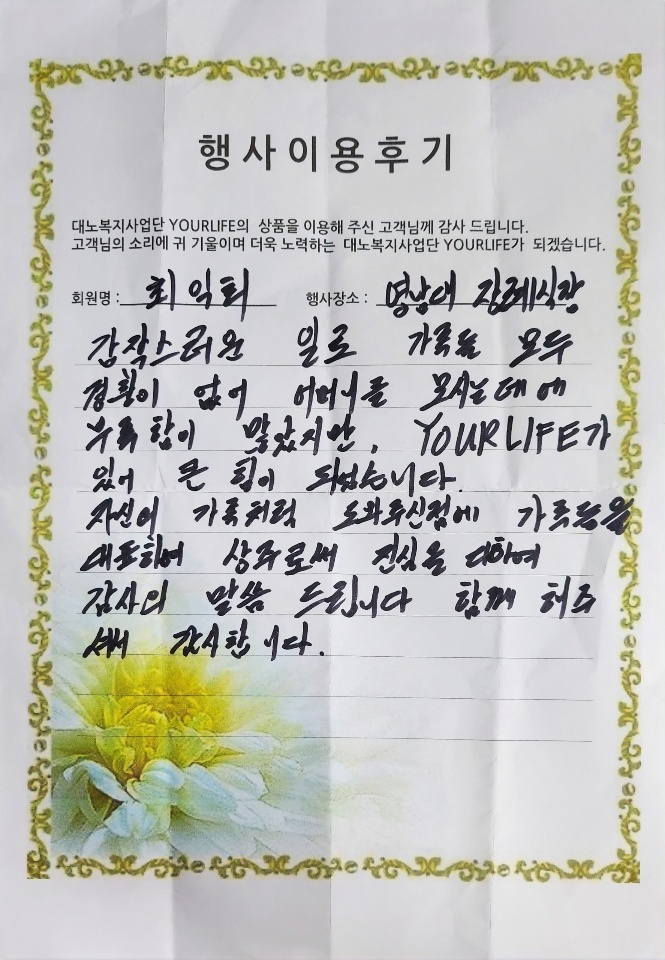 행사이용후기
대노복지사업단 YOURLIFE의 상품을 이용해 주신 고객님께 감사 드립니다.
고객님의 소리에 귀 기울이며 더욱 노력하는 대노복지사업단 YOURLIFE가 되겠습니다.
회원명 : 최익 행사장소 : 장례식장
갑작스러운 일로 가족들 모두
경황이 없어 어머니를 모시는데에
부족함이 많았지만, YOURLIFE가
있어 큰 힘이 되었습니다.
자신의 가족처럼 도와주신점에 가족들을
대표하여 상주로써 진심을 다하여
감사의 말씀 드립니다 함께 해주
셔서 감사합니다.